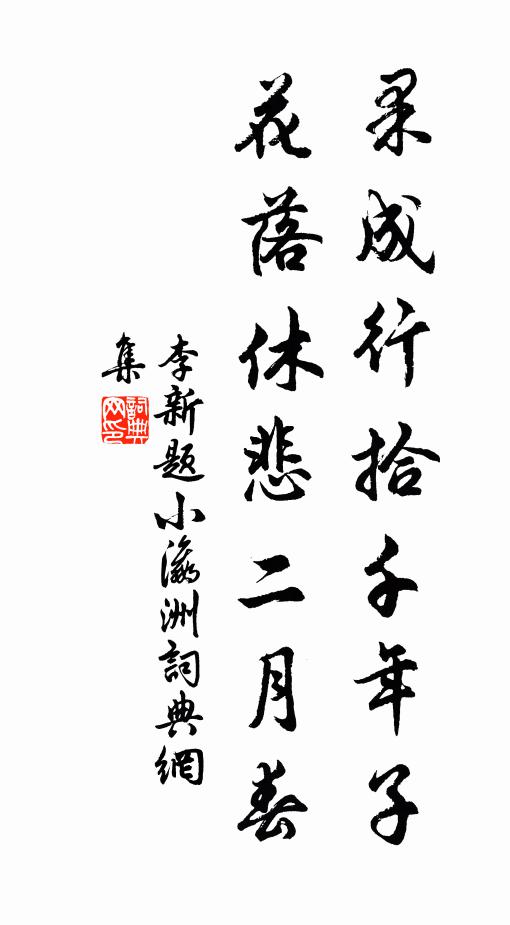 果成行拾千年子
花落休悲二月春
李新題小瀛洲詞典網
集
詞典网印